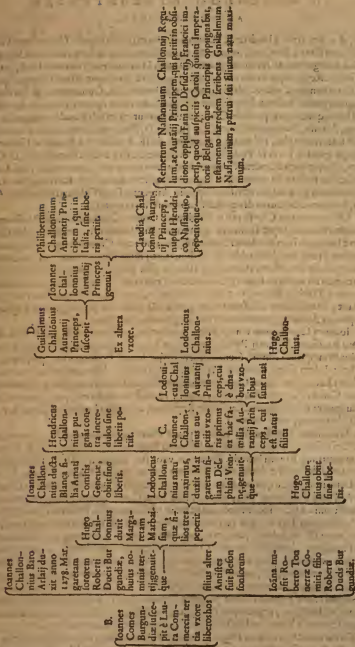 B.
Ioannes
Comes
Burgun-
diæ susce-
pit è Lau-
ra Com-
mercis ter
tia vxore
liberos hos
Ioannes
Challon-
nius Biro
Arlaij du-
xit anno
1272 Mar.
garetam
sororem
Roberti
Ducis Bur
gundiæ,
huius no-
minis ter-
tij, genuit-
que
filius alter
Antistes
fuit Beson
tionsium
nupsit Ro-
berto To-
nerræ Co-
miti, filio
Roberti
Ducis Bur
gundiæ.
Hugo
Chal-
lonnius
duxit
Marga-
retam
quæ fi-
lios tres
peperit
Ioannes
Challon-
nius ducta
Blanca fi-
lia Amati
Comitis
Geneuæ,
obijt sine
liberis.
Lodouicus
Challon-
nius natu
maximus,
duxit Mar
garetam fi-
lium Del-
phini Vien-
næ, genuit-
que
Hugo
Challon-
nius obijt
sine libe-
ris.
Henricus
Challon-
nius pu-
gnas con-
tra incre-
dulos sine
liberis pe-
rijt.
C.
Ioannes
Challon-
nius nu-
ptijs vxo-
ris primus
ex hac fa-
milia Au-
rantij Prin
ceps, cui
est natus
filius
Lodoui-
cus Chal
lonnius
Aurantij
Prin-
ceps, cui
è dua-
bus vxo-
ribus
sunt nati
D.
Guilielmus
Challõnius
Aurantij
Princeps,
suscepit
Ex altera
vxore.
Lodouicus
Challon-
nius.
Hugo
Challon-
nius.
Ioannes
Chal-
lonnius
Aurantij
Princeps
genuit
Philibertum
Challonnium
Aurantij Prin-
cipem, qui in
Italia, sine libe-
ris perijt.
Claudia Chal-
lonnia Auran-
tij Princeps,
nupsit Henri-
co Nassauio,
peperitque
Reinerum Nassauium Challonnij Regu-
lum, ac Aurãtij Principem, qui perijt in obsi-
dione oppidi Fani D. Desiderij, Francici im-
perij, quod auspicijs Caroli quinti Impera-
toris Belgarumque Principis oppugnabat,
testamento hæredem scribens Guilielmum
Nassauium, patrui sui filium natu maxi-
mum.